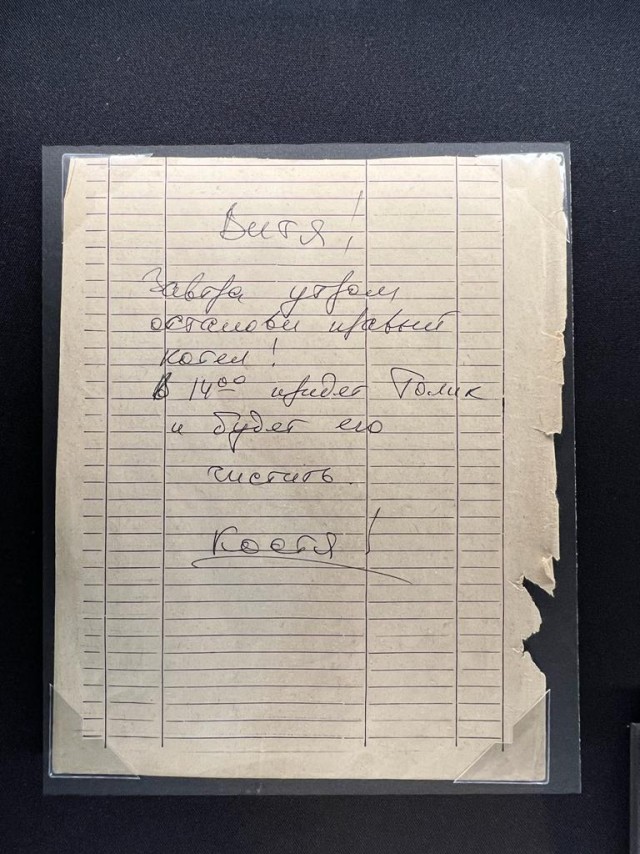 Витя!
Завтра утром
останови правый
котел!
В 14⁰⁰ придет Толик
и будет его
чистить.
Костя!